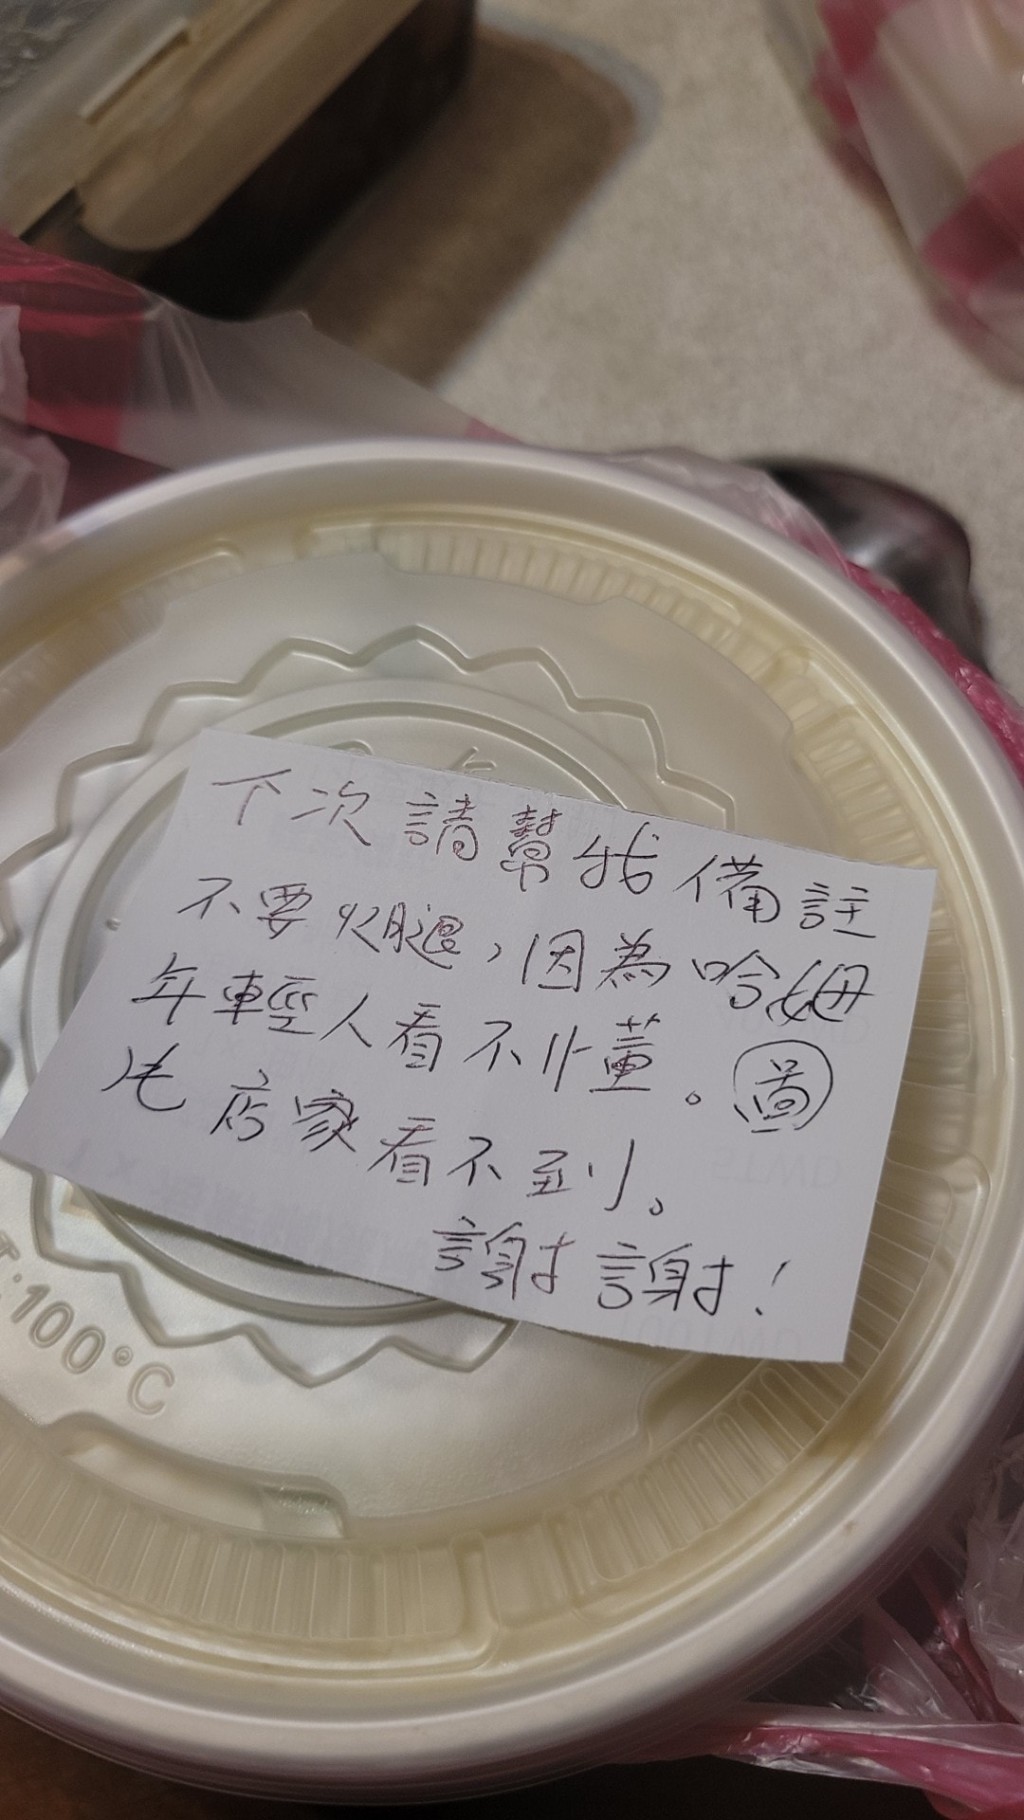 下次請幫我備註
不要火腿，因為哈姆
年輕人看不懂。圖
片也店家看不到。
謝謝！
T:100°C